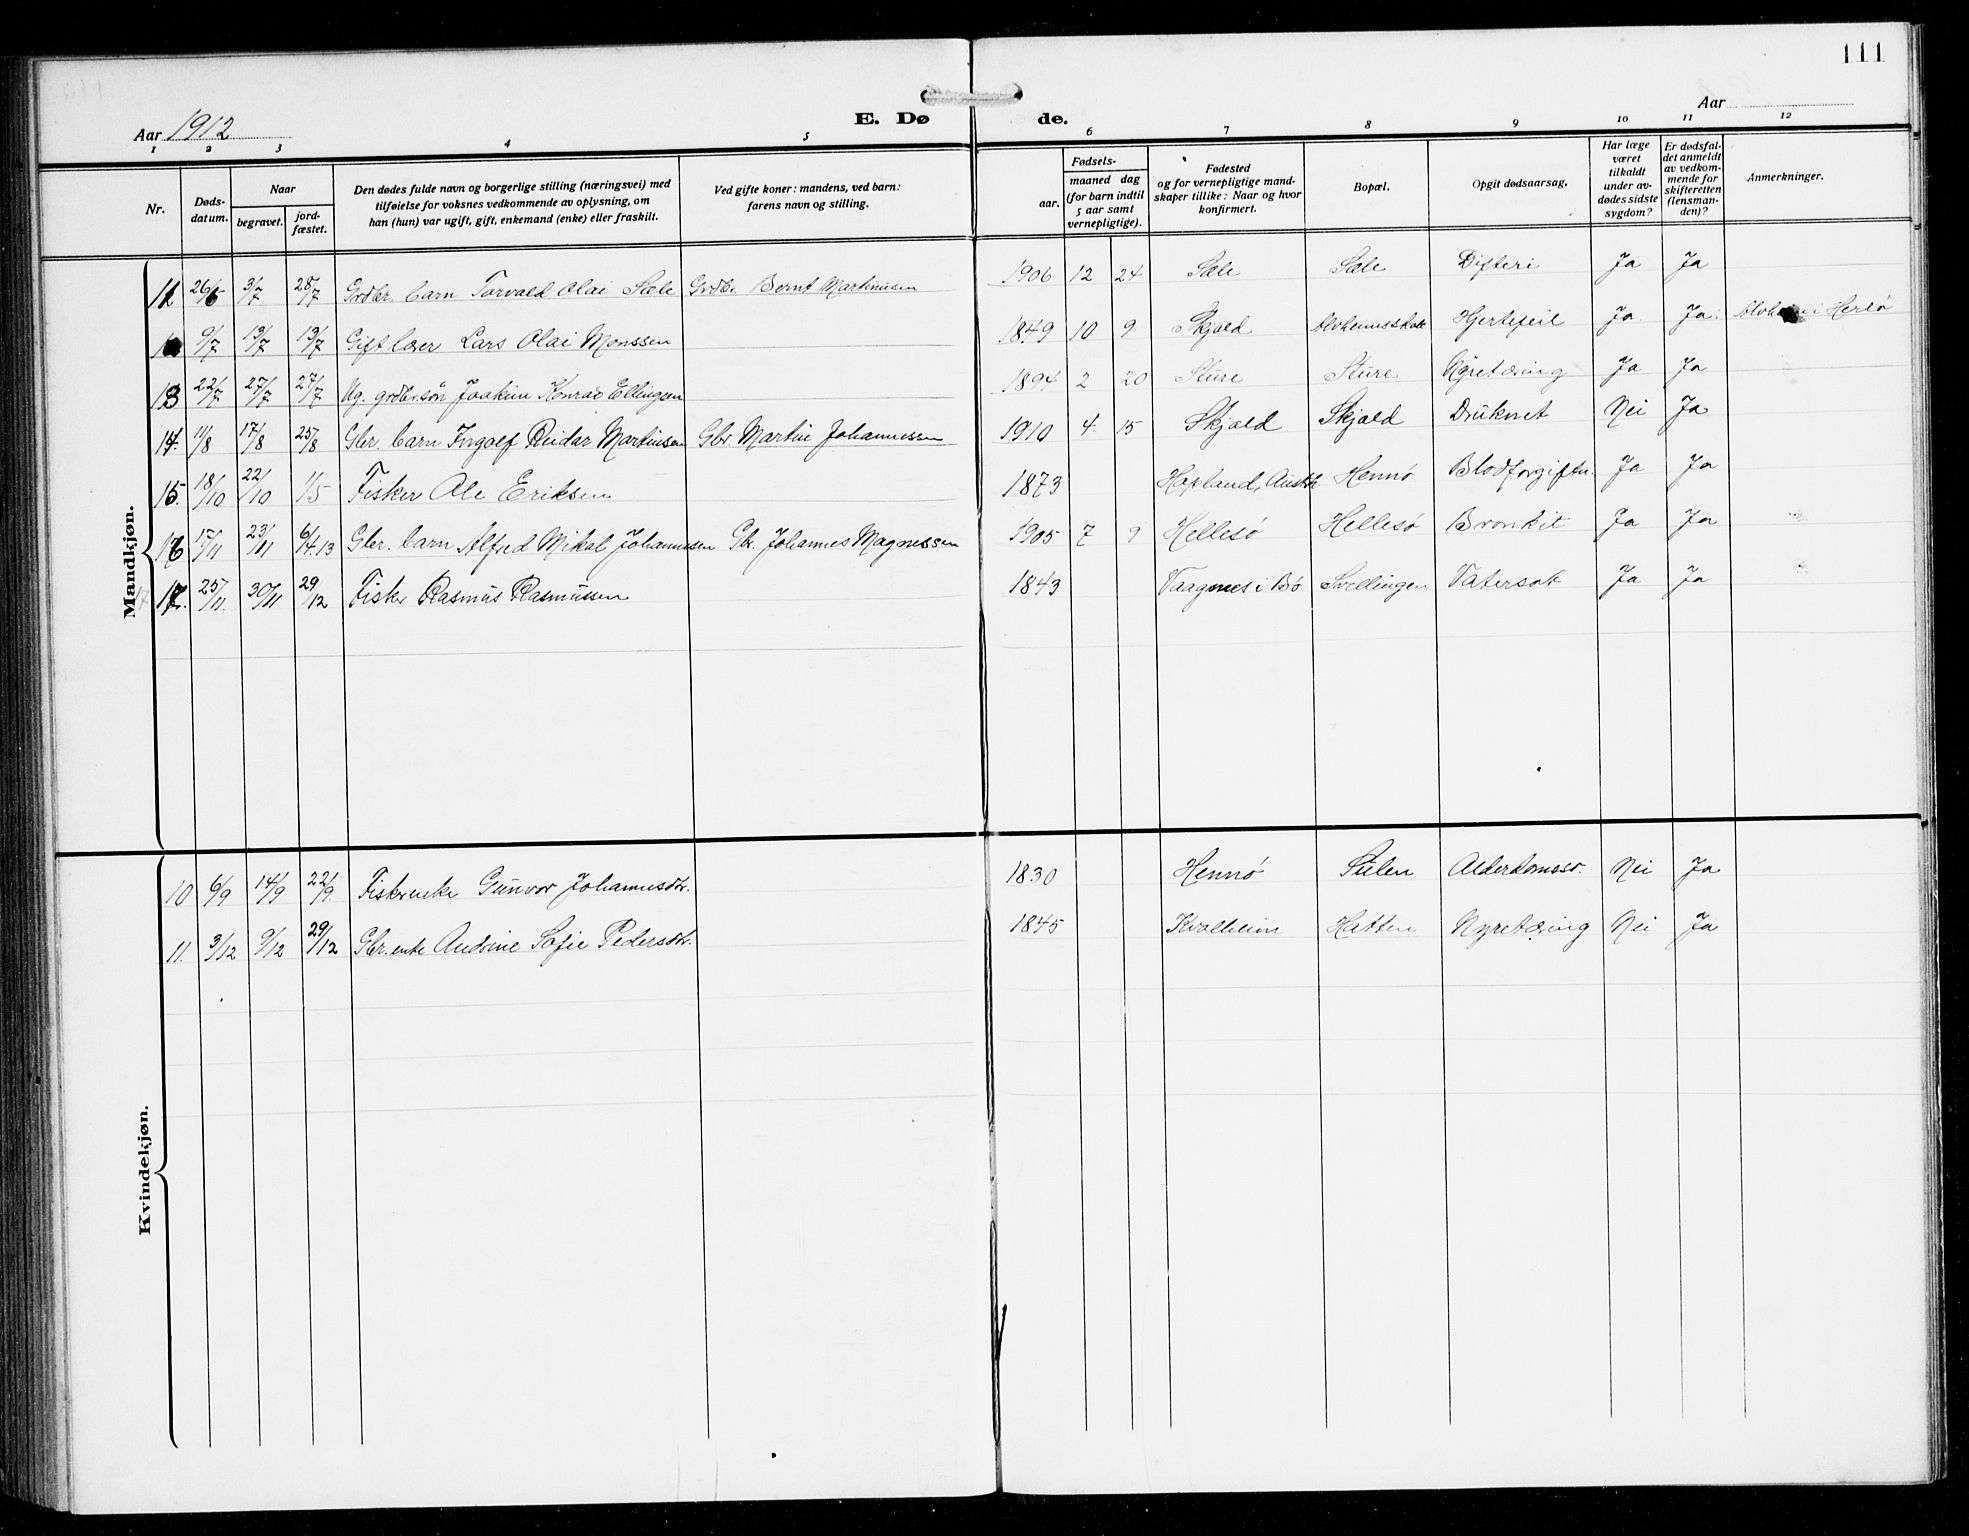 111
Aar 1912
E. Døde.
Aar
1 2 3 4 5 6 7 8 9 10 11 12
Nr.
Døds-datum.
Naar
begravet.
jord-fæstet.
Den dødes fulde navn og borgerlige stilling (næringsvei) med
tilføielse for voksnes vedkommende av oplysning, om
han (hun) var ugift, gift, enkemand (enke) eller fraskilt.
Ved gifte koner: mandens, ved barn:
farens navn og stilling.
Fødsels-
aar.
maaned dag
(for barn indtil
5 aar samt
vernepligtige).
Fødested
og for vernepligtige mand-
skaper tillike: Naar og hvor
konfirmert.
Bopæl.
Opgit dødsaarsag.
Har læge
været
tilkaldt
under av-
dødes sidste
sygdom?
Er dødsfal-
det anmeldt
av vedkom-
mende for
skifteretten
(lensman-
den)?
Anmerkninger.
Mandkjøn.
11 26/6 3/7 28/7 Grdbr. barn Torvald Olai Sæle Grdbr. Bernt Martinusen 1906 12 24 Sæle Sæle Difteri Ja Ja
9/7 13/7 13/7 Gift lærer Lars Olai Monssen 1849 10 9 Skjold Hjertefeil Ja Ja i Herlø
13 22/7 27/7 27/7 Ug. grdbr.søn Joakim Konrad Ellingsen 1894 2 20 Sture Sture Nyretæring Ja Ja
14. 11/8 17/8 25/8 Gbr. barn Ingolf Reidar Martinsen Gbr. Martin Johannessen 1910 4 15 Skjold Skjold Druknet Nei Ja
15. 18/10 22/10 1/5 Fisker Ole Eriksen 1873 Hopland, Austr. Hennø Blodforgiftn. Ja Ja
16 17/11 23/11 6/4.13 Gbr. barn Alfred Mikal Johannessen Gbr. Johannes Magnessen 1905 7 9 Hellesø Hellesø Bronkit Ja Ja
17. 25/11. 30/11 29/12 Fisker Rasmus Rasmussen 1843 Vaagenes i Bø Svellingen Vatersot Ja Ja
Kvindekjøn.
10 6/9 14/9 22/9. Fiskerenke Gunvor Johannesdtr. 1830 Hennø Sulen Alderdomssv. Nei Ja
11. 3/12 9/12 29/12 Gbr.enke Andrine Sofie Pedersdtr. 1845 Kvalheim Hatten Nyretæring Nei Ja